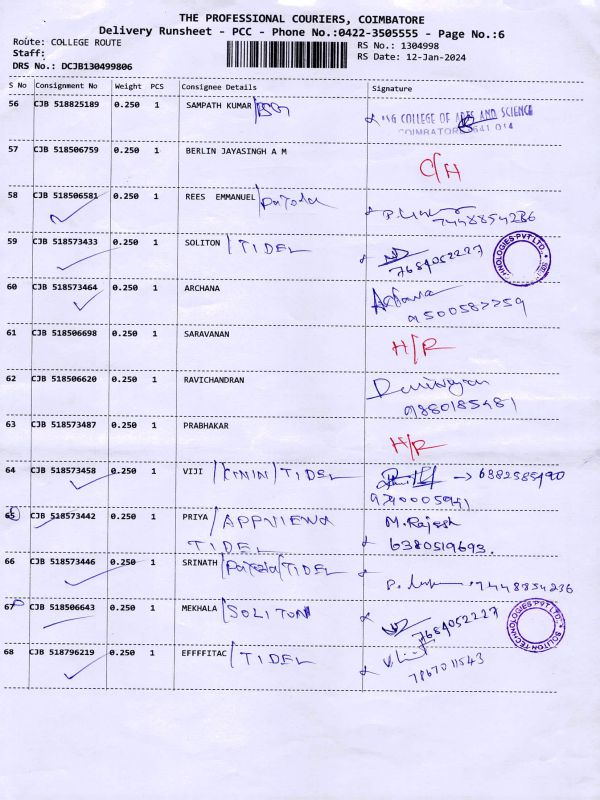 THE PROFESSIONAL COURIERS, COIMBATORE
Delivery Runsheet - PCC - Phone No.:0422-3505555 - Page No.:6
Route: COLLEGE ROUTE
RS No.: 1304998
Staff:
RS Date: 12-Jan-2024
DRS No.: DCJB130499806
S No Consignment No Weight PCS Consignee Details Signature
56 CJB 518825189 0.250 1 SAMPATH KUMAR
COLLEGE OF ARTS AND SCIENCE
COIMATORE 641 014
57 CJB 518506759 0.250 1 BERLIN JAYASINGH A M
C/H
58 CJB 518506581 0.250 1 REES EMMANUEL
7448854236
59 CJB 518573433 0.250 1 SOLITON / TIDEL
7684052227
60 CJB 518573464 0.250 1 ARCHANA
9500587759
61 CJB 518506698 0.250 1 SARAVANAN
H/R
62 CJB 518506620 0.250 1 RAVICHANDRAN
9880185481
63 CJB 518573487 0.250 1 PRABHAKAR
H/R
64 CJB 518573458 0.250 1 VIJI / TIDEL
65 CJB 518573442 0.250 1 PRIYA / M.Rajesh
TIDEL 6380519693.
66 CJB 518573446 0.250 1 SRINATH / TIDEL
7448854236
67 CJB 518506643 0.250 1 MEKHALA / SOLITON
7684052227
SOLITON TECHNOLOGIES PVT LTD.
68 CJB 518796219 0.250 1 EFFFFITAC / TIDEL
7867011543